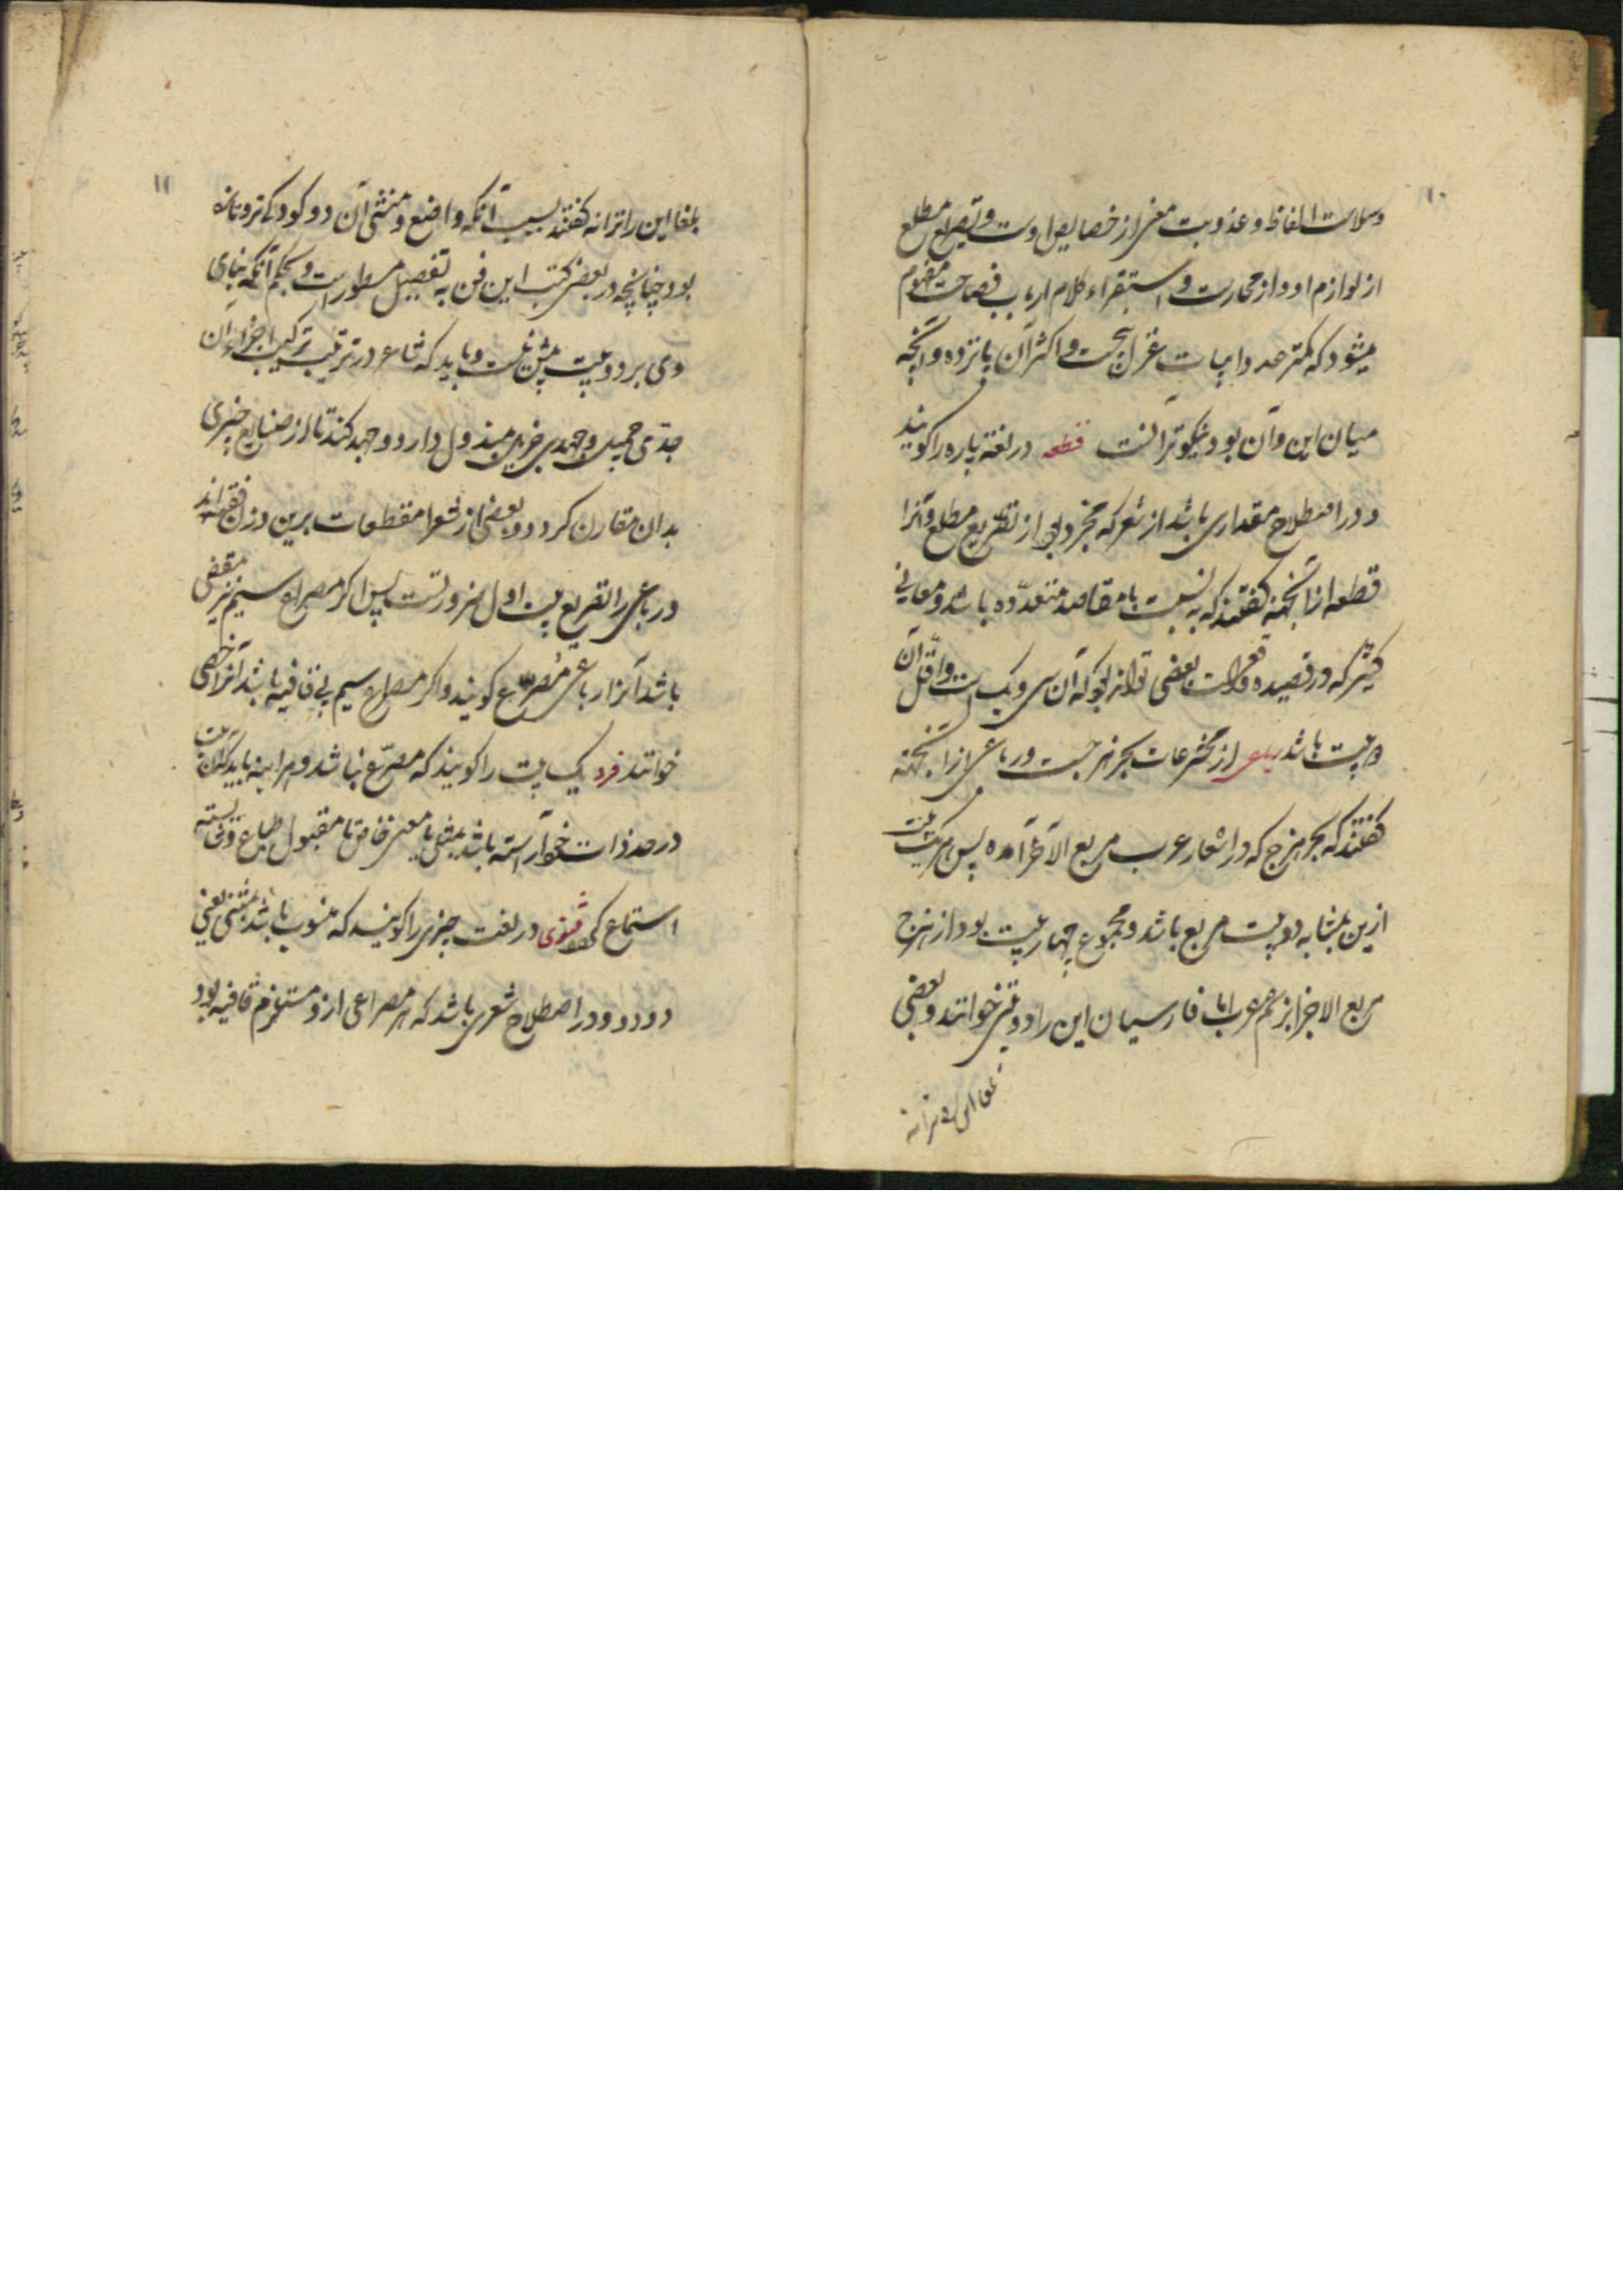 ۱۰
وسلاست الفاظ و عذوبت معنی از خصایص اوست و تصریع مطلع
از لوازم او و از مجارست و استقراء کلام ارباب فصاحت مفهوم
میشود که کمتر عدد ابیات غزل پنجست و اکثر آن پانزده و آنچه
میان این و آن بود نیکوتر آنست قطعه در لغة پاره را کویند
و در اصطلاح مقداری باشد از شعر که مجرد بود از تصریع مطلع و آنرا
قطعه از آنجهة کفتند که به نسبت با مقاصد متعدّده باشد و معانی
کثیر که در قصیده واقعست بعضی تواند بود که آن سی و یک است و اقل آن
دو بیت باشد رباعی از مخترعات بحر هزجست و رباعی از آنجهة
کفتند که بحر هزج که در اشعار عرب مربع الآخر آمده پس هر یک بیت
ازین بمثابه دو بیت مربع باشد و مجموع چهار بیت بود از هزج
مربع الاجزا بزعم عرب اما فارسیان این را دو بیتی خوانند و بعضی
بلغا این را ترانه
۱۱
بلغا این را ترانه کفتند بسبب آنکه واضع و منشی آن دو کودکی تر و تازه
بود چنانچه در بعضی کتب این فن به تفصیل مسطور است و بحکم آنکه بنای
وی بر دو بیت بیش نیست و باید که شاعر در ترتیب ترکیب اجزاء آن
جدّی جمیل و جهدی جزیل مبذول دارد و جهد کند تا از صنایع چیزی
بدان مقارن کردد و بعضی از شعرا مقطعات برین وزن کفته‌اند
در رباعی را تصریع بیت اول ضرورتست پس اکر مصراع سیم نیز مقفی
باشد آنرا رباعی مُصرّع کویند و اکر مصراع سیم بی قافیه باشد آنرا خصی
خوانند فرد یک بیت را کویند که مصرّع نباشد و هر آینه باید که آن بیت
در حد ذات خود آراسته باشد بمثلی یا معنی خاص تا مقبول طباع و شایسته
استماع کردد مثنوی در لغت چیزی را کویند که منسوب باشد بمثنی یعنی
دو دو و در اصطلاح شعری باشد که هر مصراعی ازو مستلزم قافیه بود